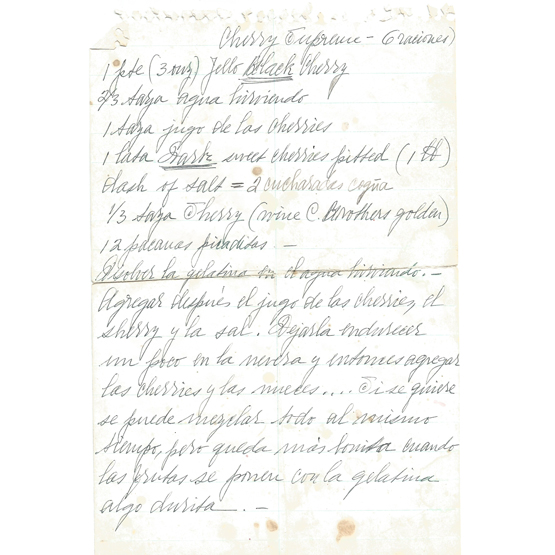 Cherry Supreme - 6 raciones)
1 pte (3 onz) Jello Black Cherry
2/3 taza agua hirviendo
1 taza jugo de las cherries
1 lata Dark sweet cherries pitted (1 lb)
dash of salt = 2 cucharadas cogña
1/3 taza Sherry (wine C. Brothers golden)
12 pacanas picaditas -
Disolver la gelatina en el agua hirviendo. -
Agregar después el jugo de las cherries, el
sherry y la sal. Dejarla endurecer
un poco en la nevera y entonces agregar
las cherries y las nueces.... Si se quiere
se puede mezclar todo al mismo
tiempo, pero queda más bonita cuando
las frutas se ponen con la gelatina
algo durita. -